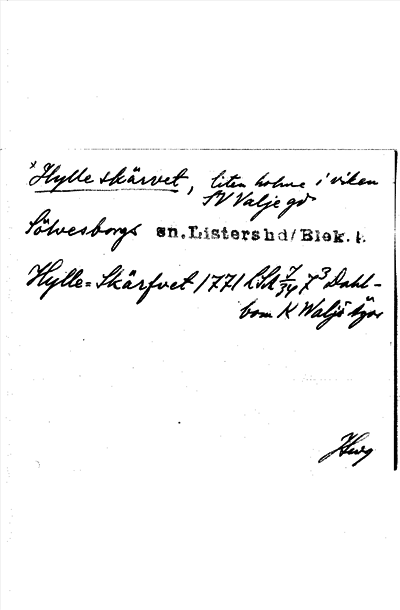 x Hylle skärvet, liten holme i viken
SV Valje gd
Sölvesborgs sn. Listers hd/Blek. l.
Hylle=Skärfvet 1771 LSA 7/34 7³ Dahl-
bom K Waljö